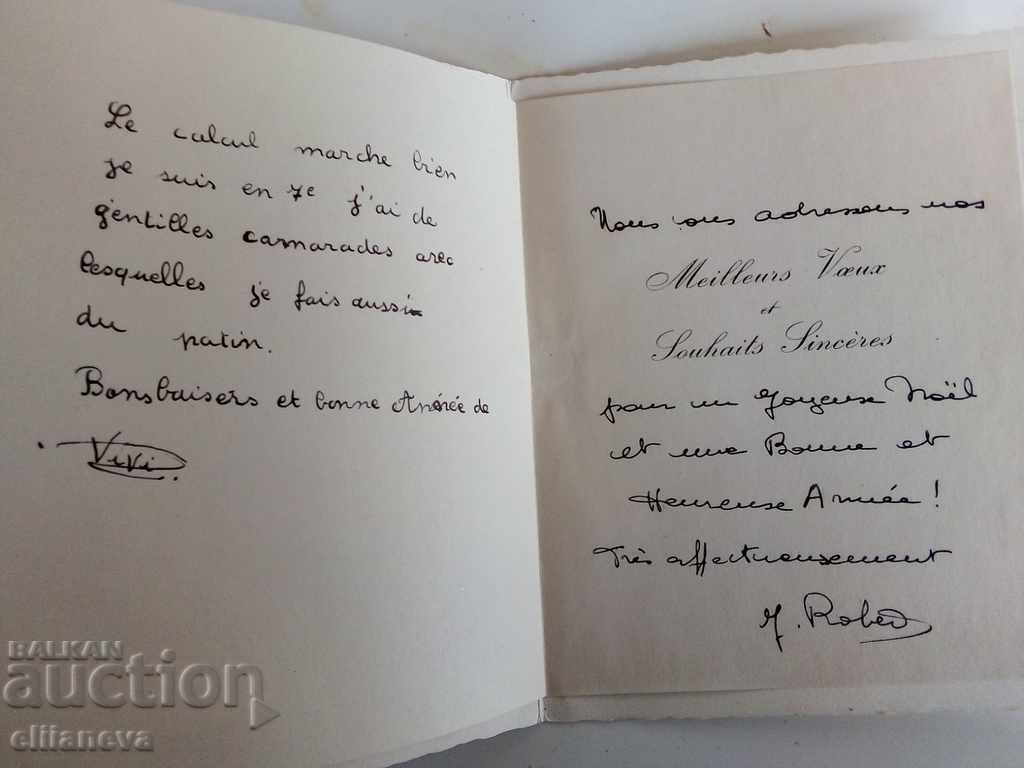 Le calcul marche bien
je suis en 7e j'ai de
gentilles camarades avec
lesquelles je fais aussi
du patin.
Bonsbaisers et bonne Année de
ViVi
Nous vous adressons nos
Meilleurs Vœux
et
Souhaits Sincères
pour un Joyeuse Noël
et une Bonne et
Heureuse Année !
Très affectueusement
BALKAN
auction
ellianeva